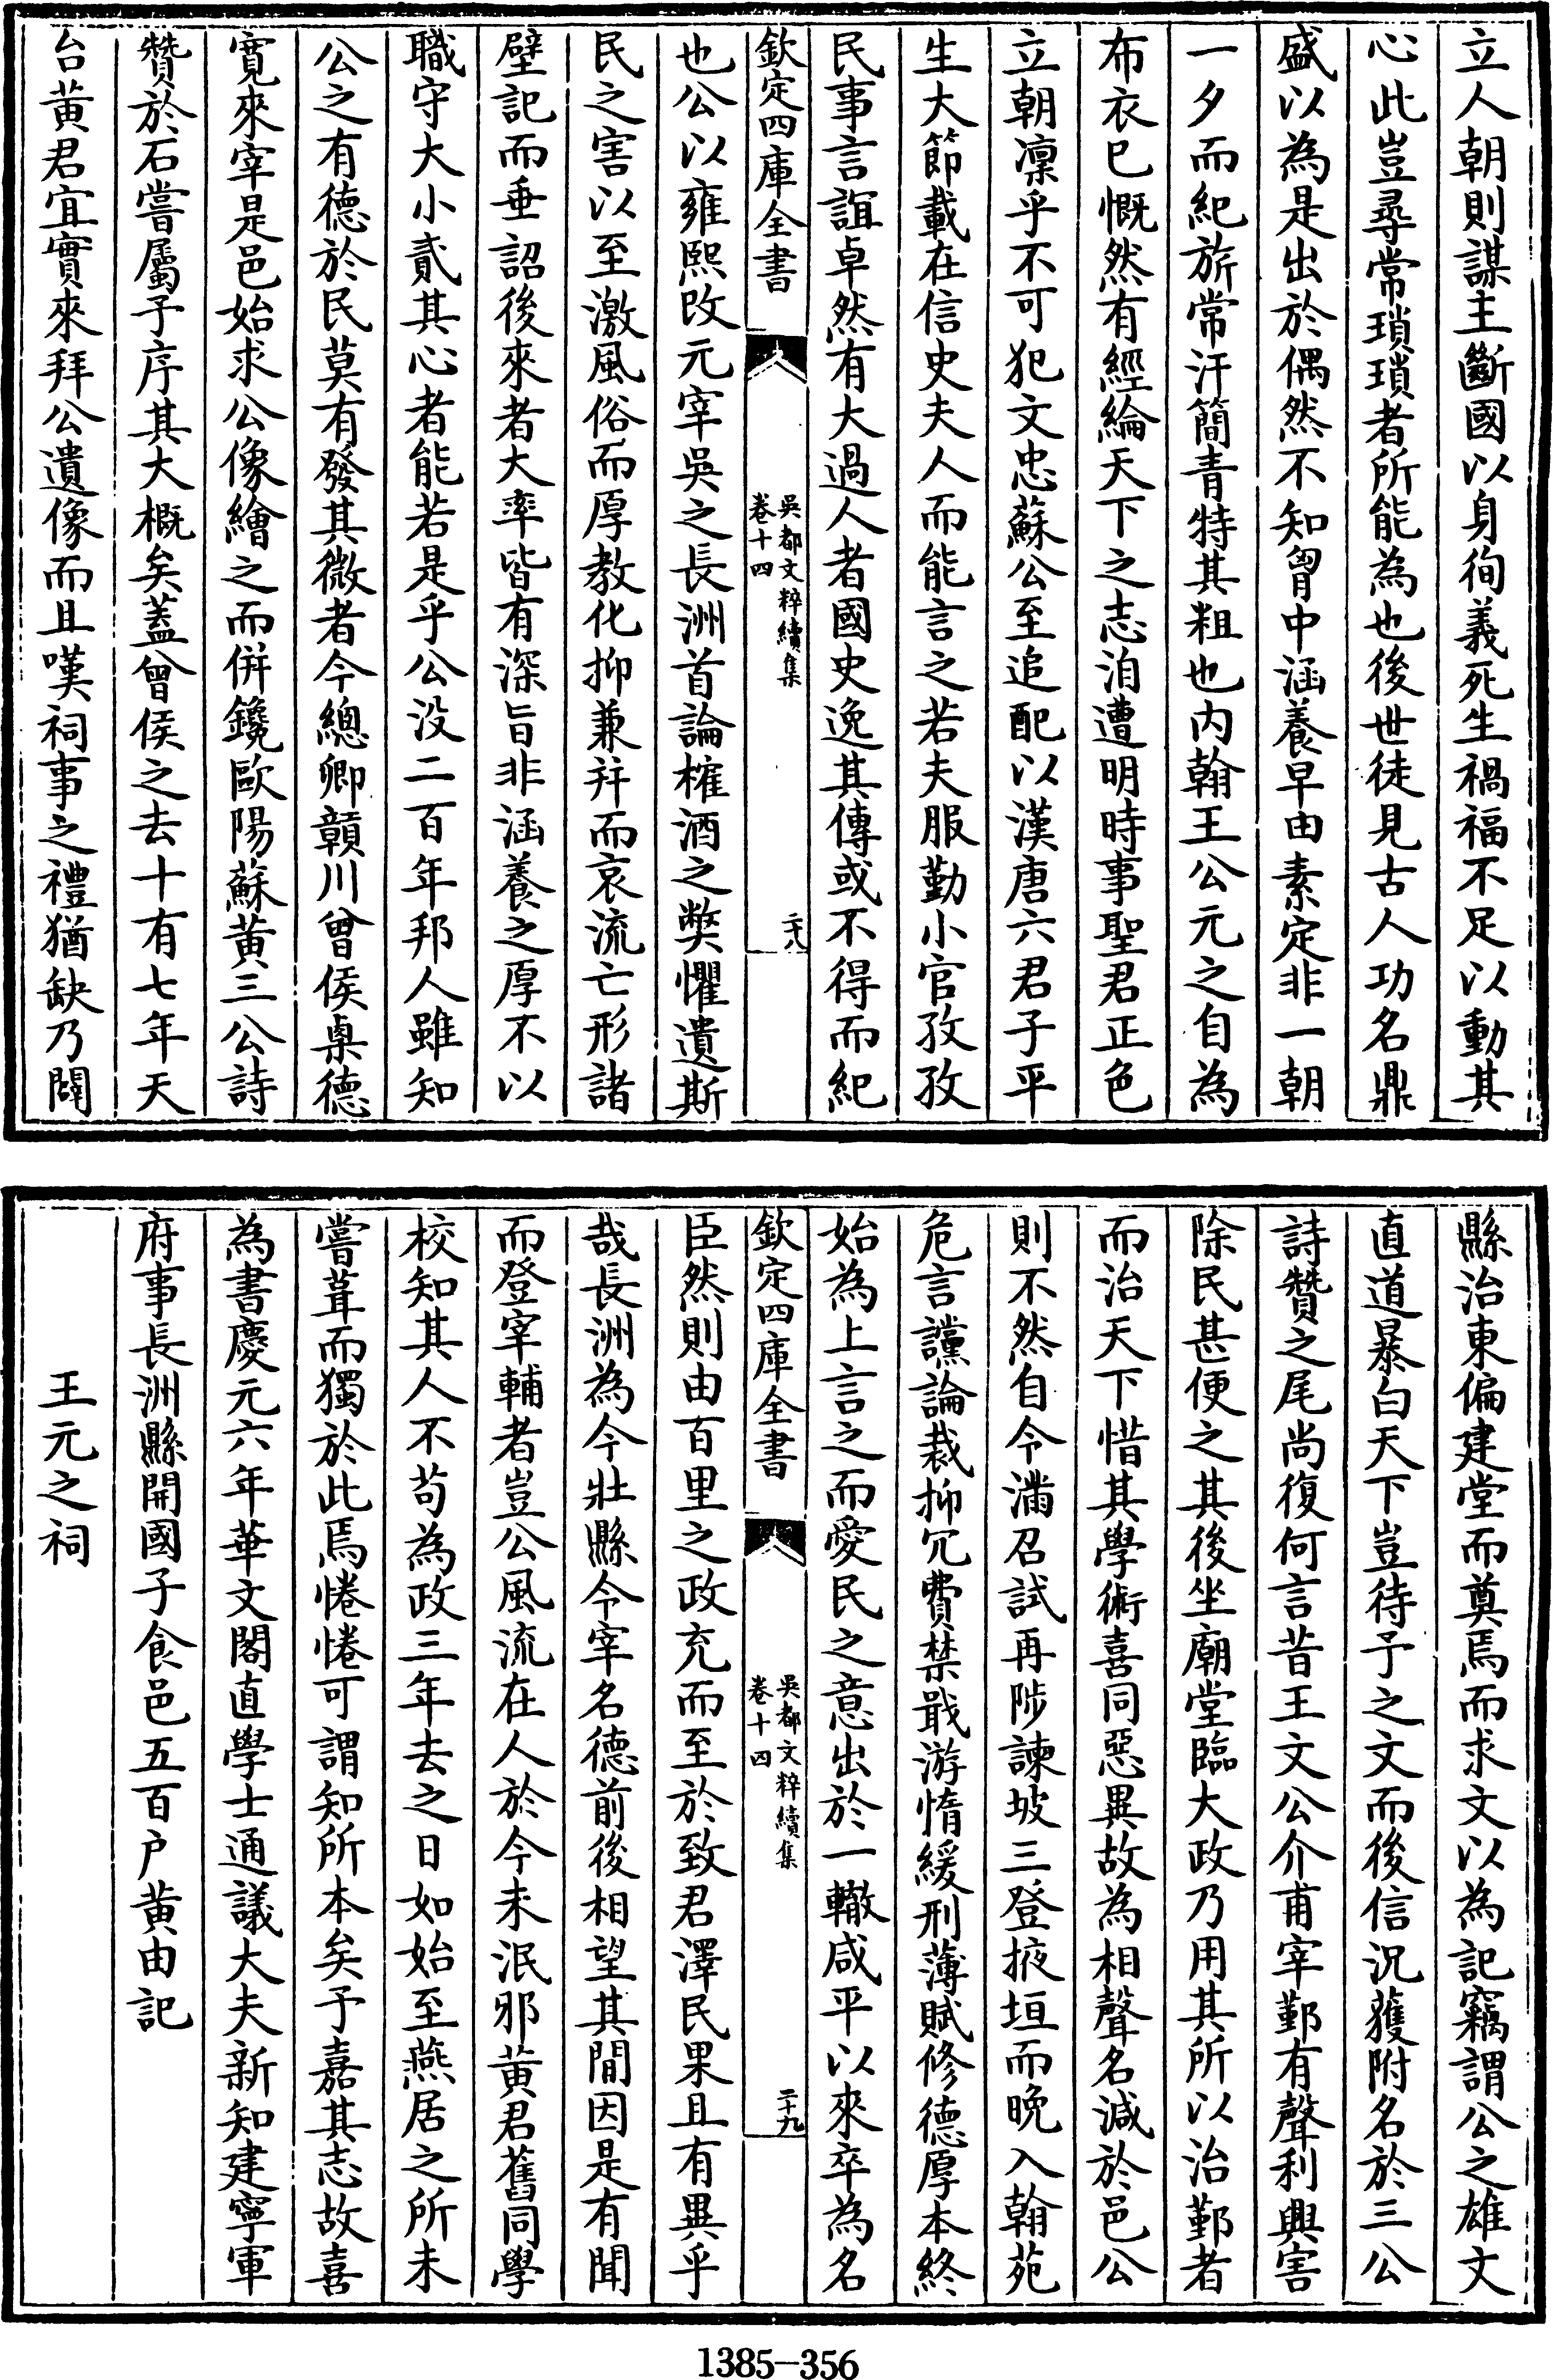 立人朝則謀主斷國以身徇義死生禍福不足以動其
心此豈尋常瑣瑣者所能為也後世徒見古人功名鼎
盛以為是出於偶然不知胷中涵養早由素定非一朝
一夕而紀旂常汗簡青特其粗也内翰王公元之自為
布衣已慨然有經綸天下之志洎遭明時事聖君正色
立朝凛乎不可犯文忠蘇公至追配以漢唐六君子平
生大節載在信史夫人而能言之若夫服勤小官孜孜
民事言誼卓然有大過人者國史逸其傳或不得而紀
欽定四庫全書
吳都文粹續集
卷十四
二十八
也公以雍熙改元宰吳之長洲首論榷酒之弊懼遺斯
民之害以至激風俗而厚教化抑兼并而哀流亡形諸
壁記而垂詔後來者大率皆有深旨非涵養之厚不以
職守大小貳其心者能若是乎公没二百年邦人雖知
公之有德於民莫有發其微者今總卿贛川曾侯㮚德
寛來宰是邑始求公像繪之而併鑱歐陽蘇黄三公詩
贊於石嘗屬予序其大概矣蓋曾侯之去十有七年天
台黄君宜實來拜公遺像而且嘆祠事之禮猶缺乃闢
縣治東偏建堂而奠焉而求文以為記竊謂公之雄文
直道暴白天下豈待予之文而後信況獲附名於三公
詩贊之尾尚復何言昔王文公介甫宰鄞有聲利興害
除民甚便之其後坐廟堂臨大政乃用其所以治鄞者
而治天下惜其學術喜同惡異故為相聲名減於邑公
則不然自令滿召試再陟諫坡三登掖垣而晩入翰苑
危言讜論裁抑冗費禁戢游惰緩刑薄賦修德厚本終
始為上言之而愛民之意出於一轍咸平以來卒為名
欽定四庫全書
吳都文粹續集
卷十四
二十九
臣然則由百里之政充而至於致君澤民果且有異乎
哉長洲為今壯縣今宰名德前後相望其間因是有聞
而登宰輔者豈公風流在人於今未泯邪黄君舊同學
校知其人不苟為政三年去之日如始至燕居之所未
嘗葺而獨於此焉惓惓可謂知所本矣予嘉其志故喜
為書慶元六年華文閣直學士通議大夫新知建寧軍
府事長洲縣開國子食邑五百户黄由記
王元之祠
1385-356